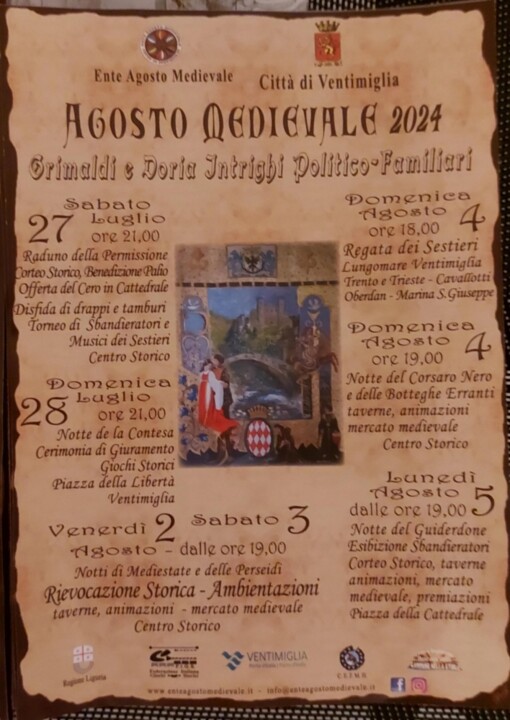 Ente Agosto Medievale
Città di Ventimiglia
AGOSTO MEDIEVALE 2024
Grimaldi e Doria Intrighi Politico-Familiari
Sabato
27 Luglio
ore 21,00
Raduno della Permissione
Corteo Storico, Benedizione Palio
Offerta del Cero in Cattedrale
Disfida di drappi e tamburi
Torneo di Sbandieratori e
Musici dei Sestieri
Centro Storico
Domenica
28 Luglio
ore 21,00
Notte de la Contesa
Cerimonia di Giuramento
Giochi Storici
Piazza della Libertà
Ventimiglia
Venerdì 2 Sabato 3
Agosto - dalle ore 19,00
Notti di Mediestate e delle Perseidi
Rievocazione Storica - Ambientazioni
taverne, animazioni - mercato medievale
Centro Storico
Domenica
Agosto 4
ore 18,00
Regata dei Sestieri
Lungomare Ventimiglia
Trento e Trieste - Cavallotti
Oberdan - Marina S.Giuseppe
Domenica
Agosto 4
ore 19,00
Notte del Corsaro Nero
e delle Botteghe Erranti
taverne, animazioni
mercato medievale
Centro Storico
Lunedì
Agosto 5
dalle ore 19,00
Notte del Guiderdone
Esibizione Sbandieratori
Corteo Storico, taverne
animazioni, mercato
medievale, premiazioni
Piazza della Cattedrale
Regione Liguria
VENTIMIGLIA
www.enteagostomedievale.it - info@enteagostomedievale.it